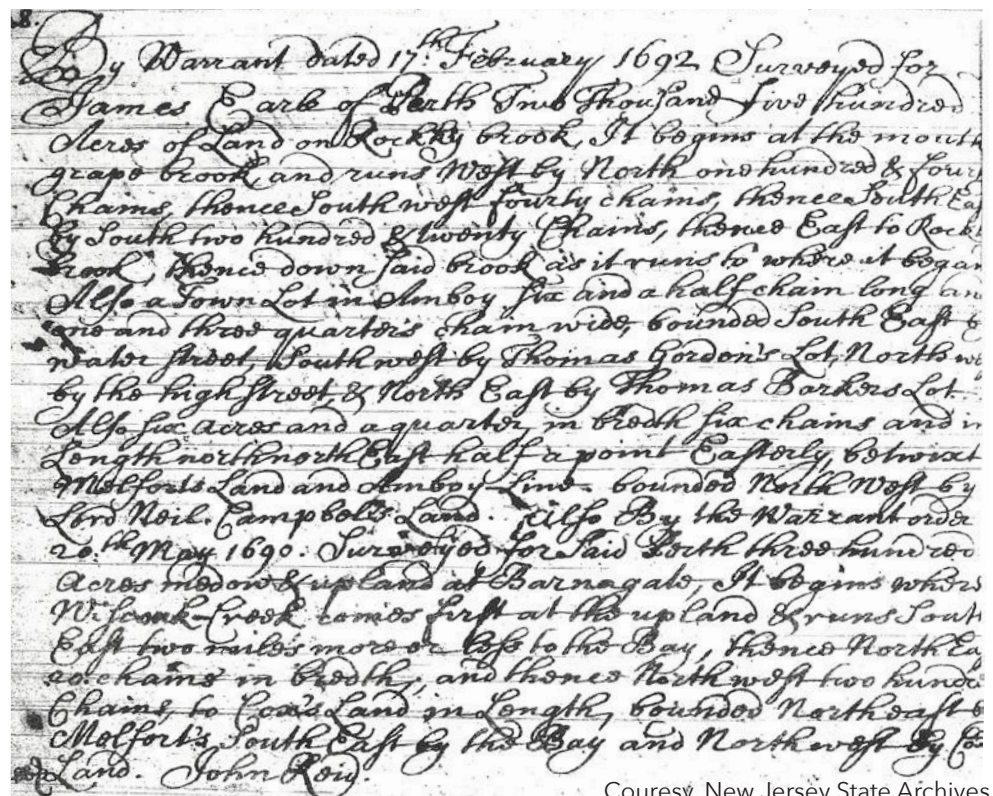 8.
By Warrant dated 17th. February 1692 Surveyed for
James Earle of Perth Two Thousand five hundred
Acres of Land on Rockky brook, It begins at the mouth
grape brook, and runs West by North one hundred & four
Chains, thence South west fourty chains, thence South Ea
by South two hundred & twenty Chains, thence East to Rock
brook, thence down said brook as it runs to where it began
Also a Town Lot in Amboy six and a half chain long an
one and three quarters chain wide, bounded South East
water street, South west by Thomas Gordon's Lot, North we
by the high street, & North East by Thomas Barkers Lot
Also six acres and a quarter, in bredth six chains and in
Length north north East half a point Easterly, betwixt
Melforts Land and Amboy Line. bounded North West by
Lord Neil. Campbell's Land. Also By the Warrant order
20.th May 1690. Surveyed for Said Perth three hundred
acres medow & upland at Barnagate, It begins where
Creek comes first at the upland & runs Sout
East two miles more or less to the Bay, thence North Ea
20. chains in bredth, and thence North west two hundre
Chains, to Cox's Land in Length, bounded Northeast
Melfort's South East by the Bay and North west By Co
Land. John Reid.
Couresy, New Jersey State Archives